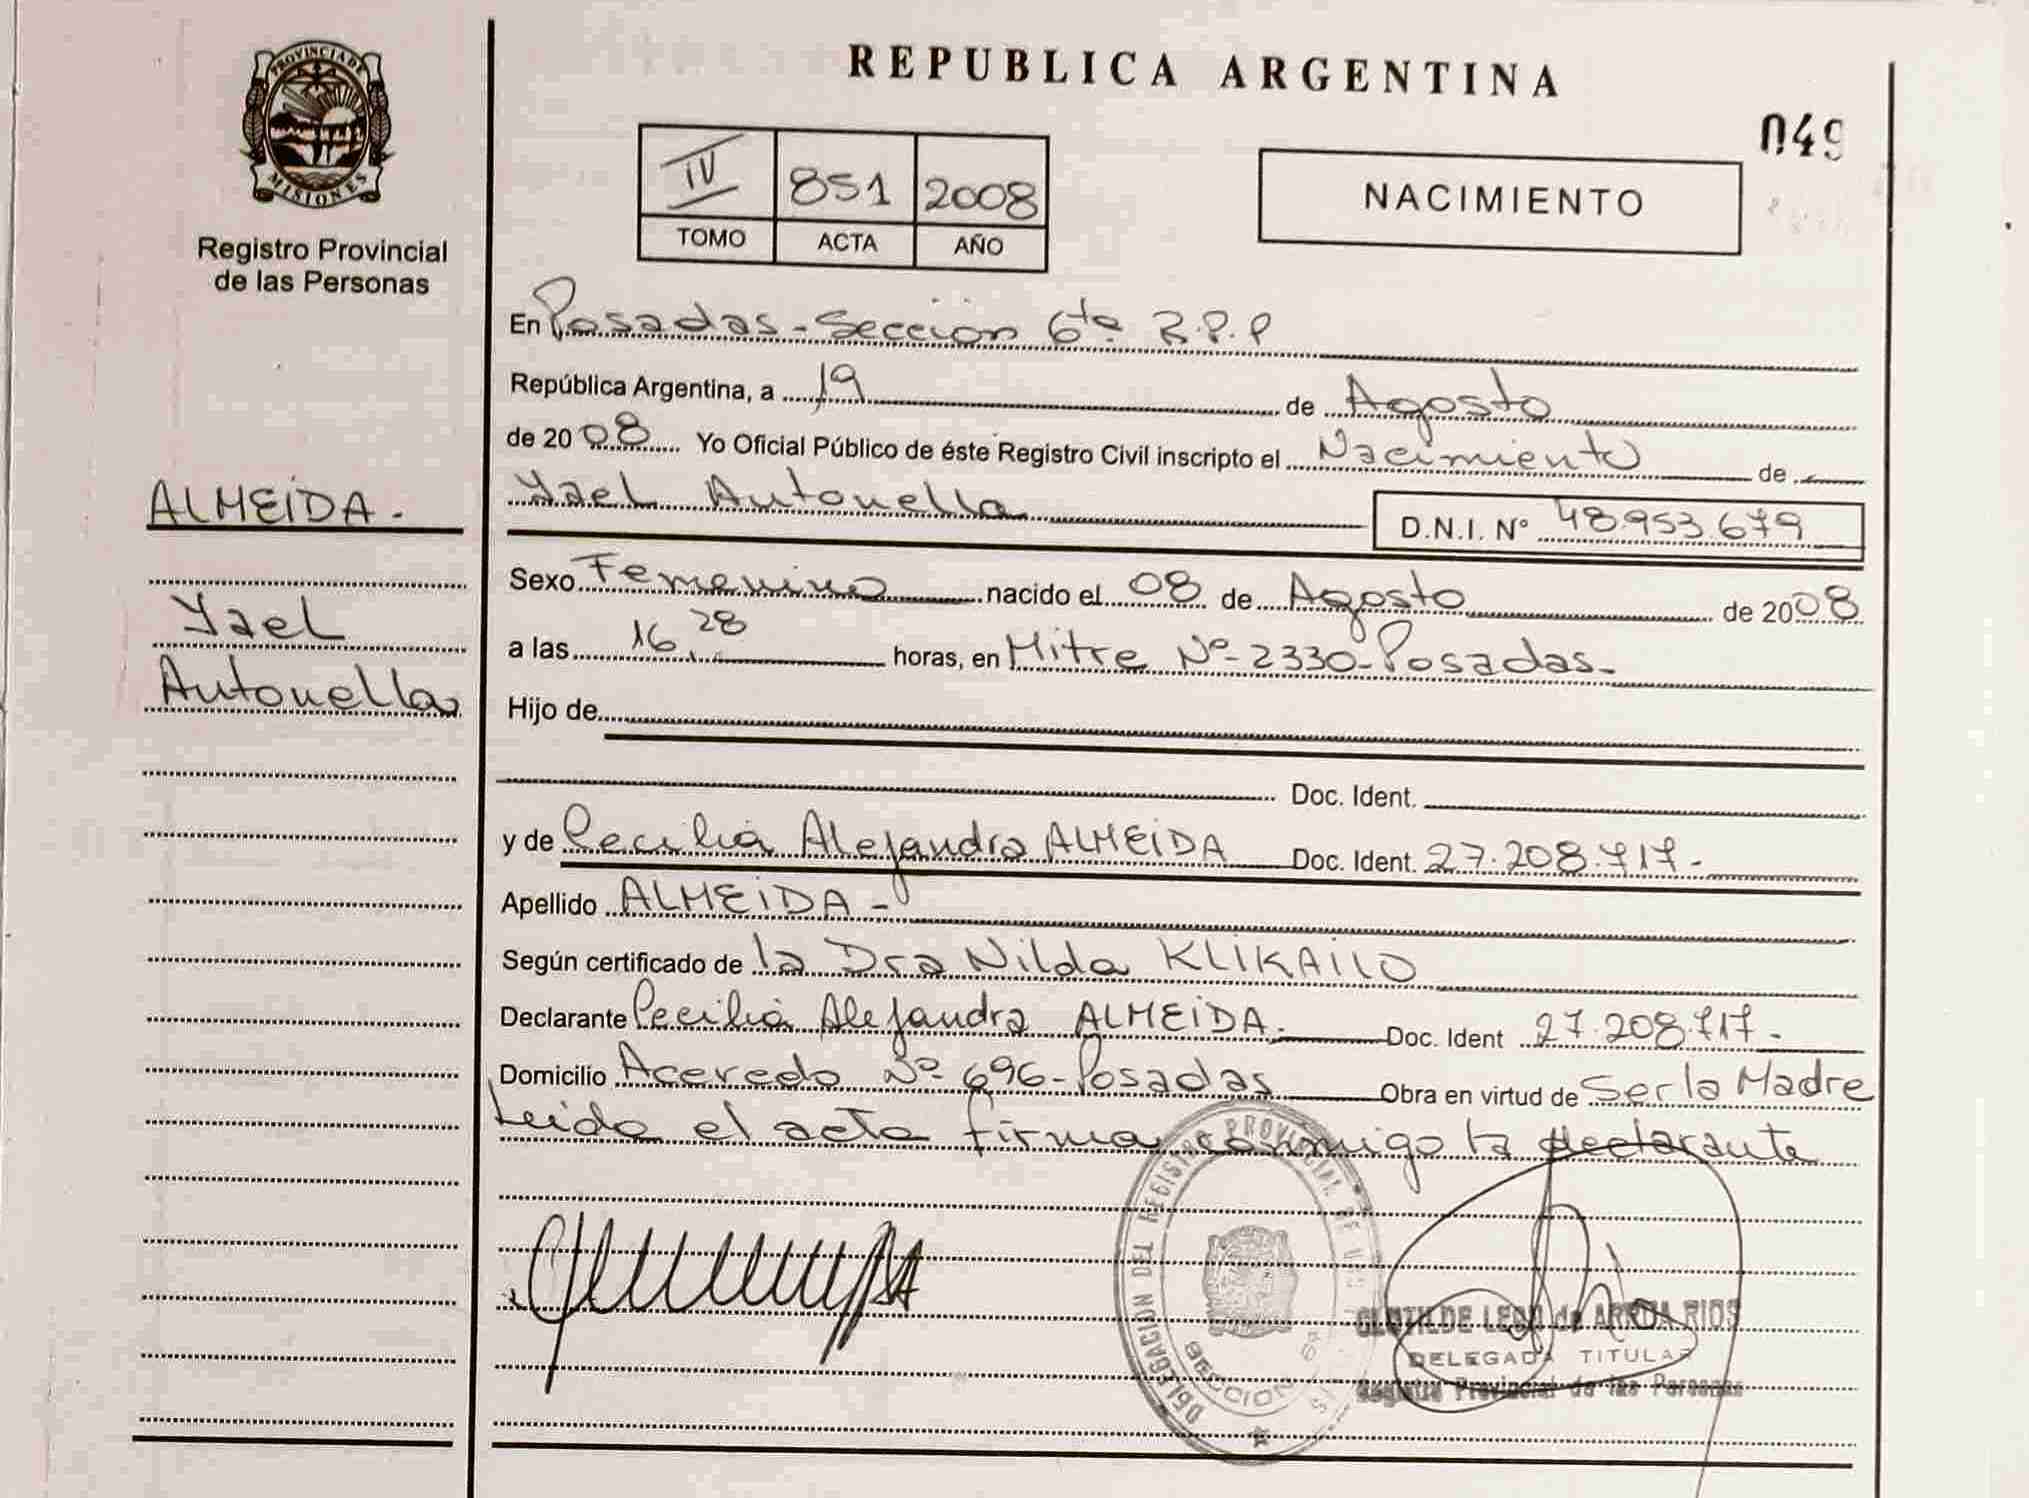 PROVINCIA DE
MISIONES
Registro Provincial
de las Personas
REPUBLICA ARGENTINA
049
IV 851 2008
TOMO ACTA AÑO
NACIMIENTO
En Posadas - Sección 6ta R.P.P
República Argentina, a 19 de Agosto
de 2008 Yo Oficial Público de éste Registro Civil inscripto el Nacimiento de
Yael Antonella D.N.I. Nº 48.953.679
ALMEIDA -
Yael
Antonella
Sexo Femenino nacido el 08 de Agosto de 2008
a las 16,28 horas, en Mitre Nº - 2330 - Posadas -
Hijo de
Doc. Ident.
y de Cecilia Alejandra ALMEIDA Doc. Ident. 27.208.717 -
Apellido ALMEIDA -
Según certificado de la Dra Nilda KLIKAILO
Declarante Cecilia Alejandra ALMEIDA - Doc. Ident 27.208.717 -
Domicilio Acevedo Nº - 696 - Posadas Obra en virtud de Ser la Madre
Leido el acta firma conmigo la declarante
DELEGACION DEL REGISTRO PROVINCIAL DE
SECCION 6
CLOTILDE LEON de ARRUA RIOS
DELEGADA TITULAR
Registro Provincial de las Personas